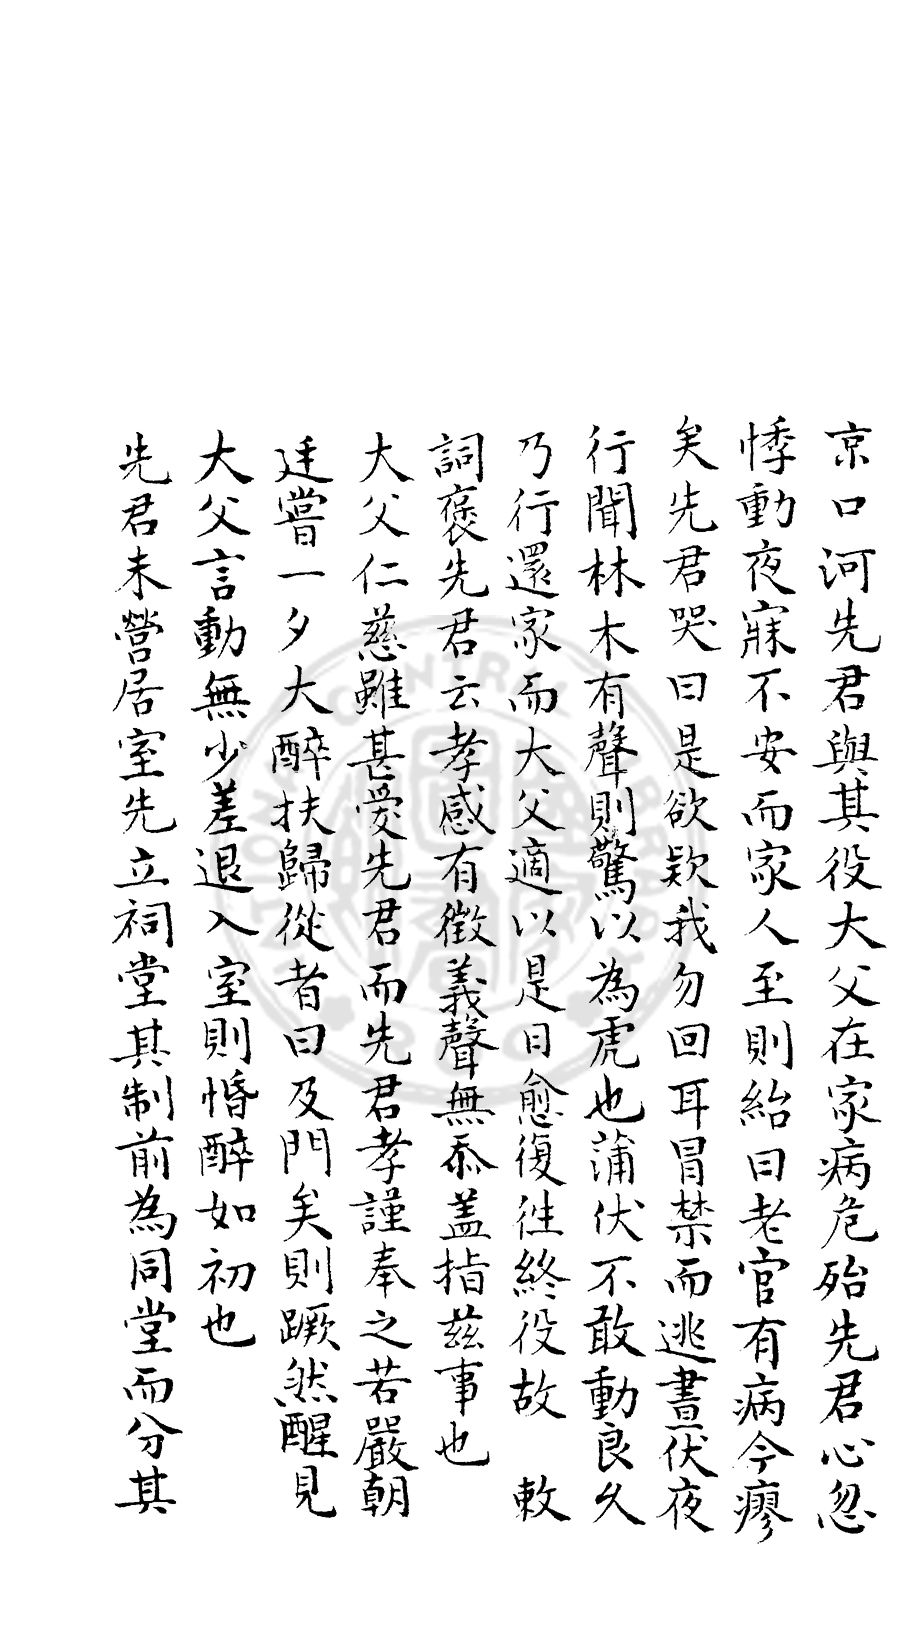 京口河先君與其役大父在家病危殆先君心忽
悸動夜寐不安而家人至則紿曰老官有病今瘳
矣先君哭曰是欲欵我勿回耳冒禁而逃晝伏夜
行聞林木有聲則驚以為虎也蒲伏不敢動良久
乃行還家而大父適以是日愈復徃終役故　敕
詞褒先君云孝感有徵義聲無忝盖指茲事也
大父仁慈雖甚愛先君而先君孝謹奉之若嚴朝
廷嘗一夕大醉扶歸從者曰及門矣則蹶然醒見
大父言動無少差退入室則惛醉如初也
先君未營居室先立祠堂其制前為同堂而分其